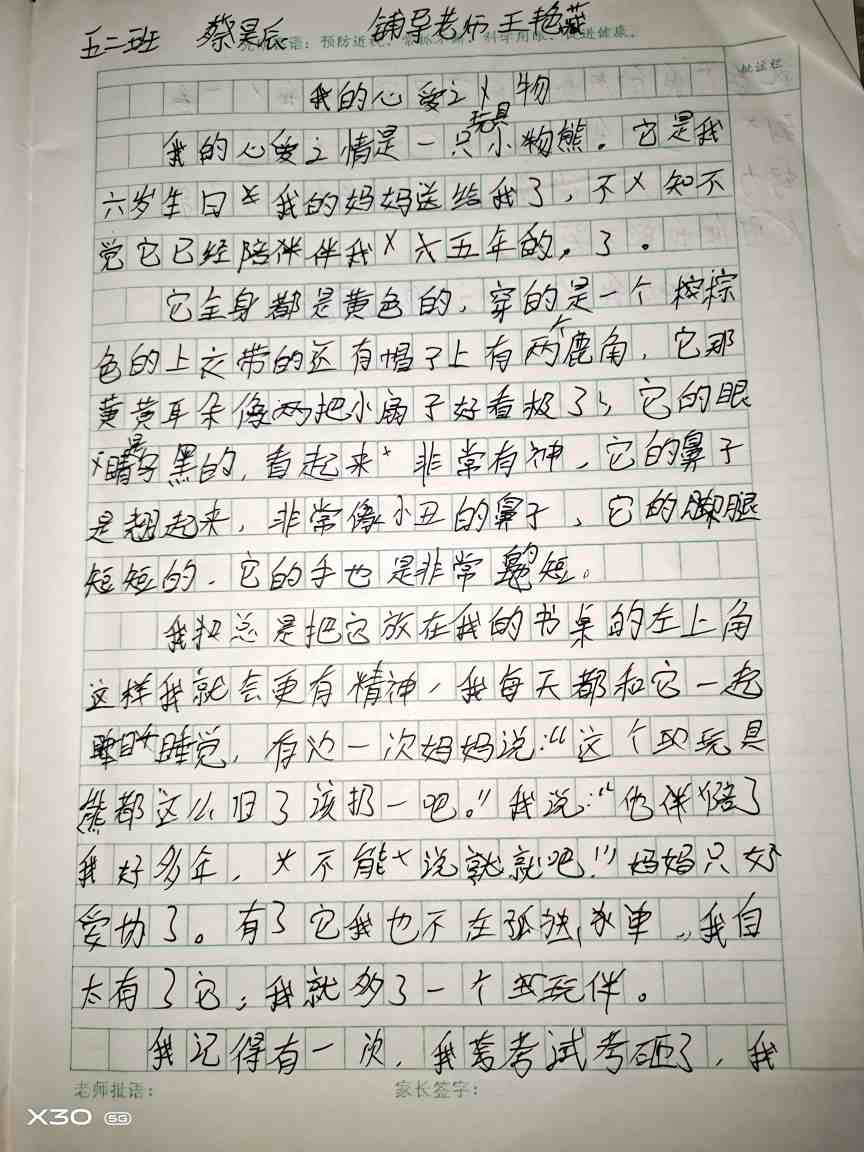 五二班 蔡昊辰 铺导老师王艳
语：预防近视, 科学用眼、促进健康。
批注栏
我的心爱之物
玩具
我的心爱之情是一只小物熊。它是我
六岁生日 我的妈妈送给我了，不知不
觉它已经陪伴伴我六五年的。了。
它全身都是黄色的，穿的是一个棕
色的上衣带的还有帽了上有两个鹿角，它那
黄黄耳朵像两把小扇子好看极了，它的眼
睛是黑的，看起来非常有神，它的鼻子
是翘起来，非常像小丑的鼻子，它的脚腿
短短的，它的手也是非常的短。
我总是把它放在我的书桌的左上角
这样我就会更有精神，我每天都和它一起
睡觉，有一次妈妈说：“这个玩具
熊都这么旧了该扔一吧。”我说：“他伴陪了
我好多年，不能说就就吧！”妈妈只好
了。有了它我也不在孤独，单，我自
太有了它，我就多了一个玩伴。
我记得有一次，我考试考砸了，我
老师批语： 家长签字：
X30 5G